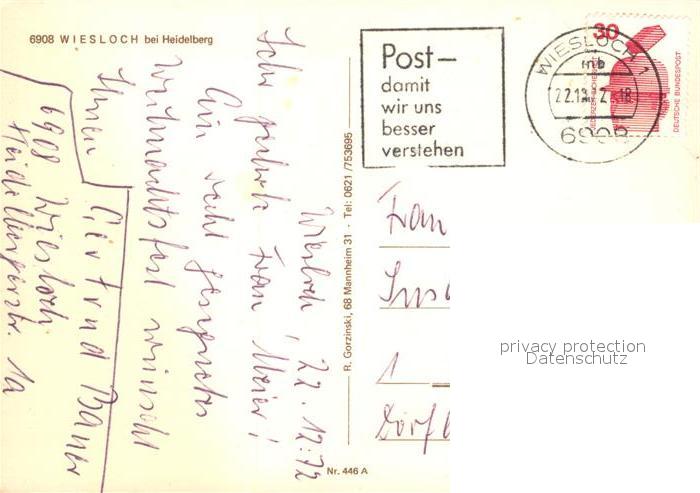 6908 WIESLOCH bei Heidelberg
Post—
damit
wir uns
besser
verstehen
WIESLOCH 1
mb
22.12.72-18
6908
30
DEUTSCHE BUNDESPOST
Wiesloch, 22.12.72
Sehr geehrte Frau Meier!
Ein recht gesegnetes
Weihnachtsfest wünscht
Ihnen
Gertrud Bauer
6908 Wiesloch
Heidelbergerstr. 1a
R. Gorzinski, 68 Mannheim 31 · Tel: 0621/753695
Nr. 446 A
Frau
1
privacy protection
Datenschutz